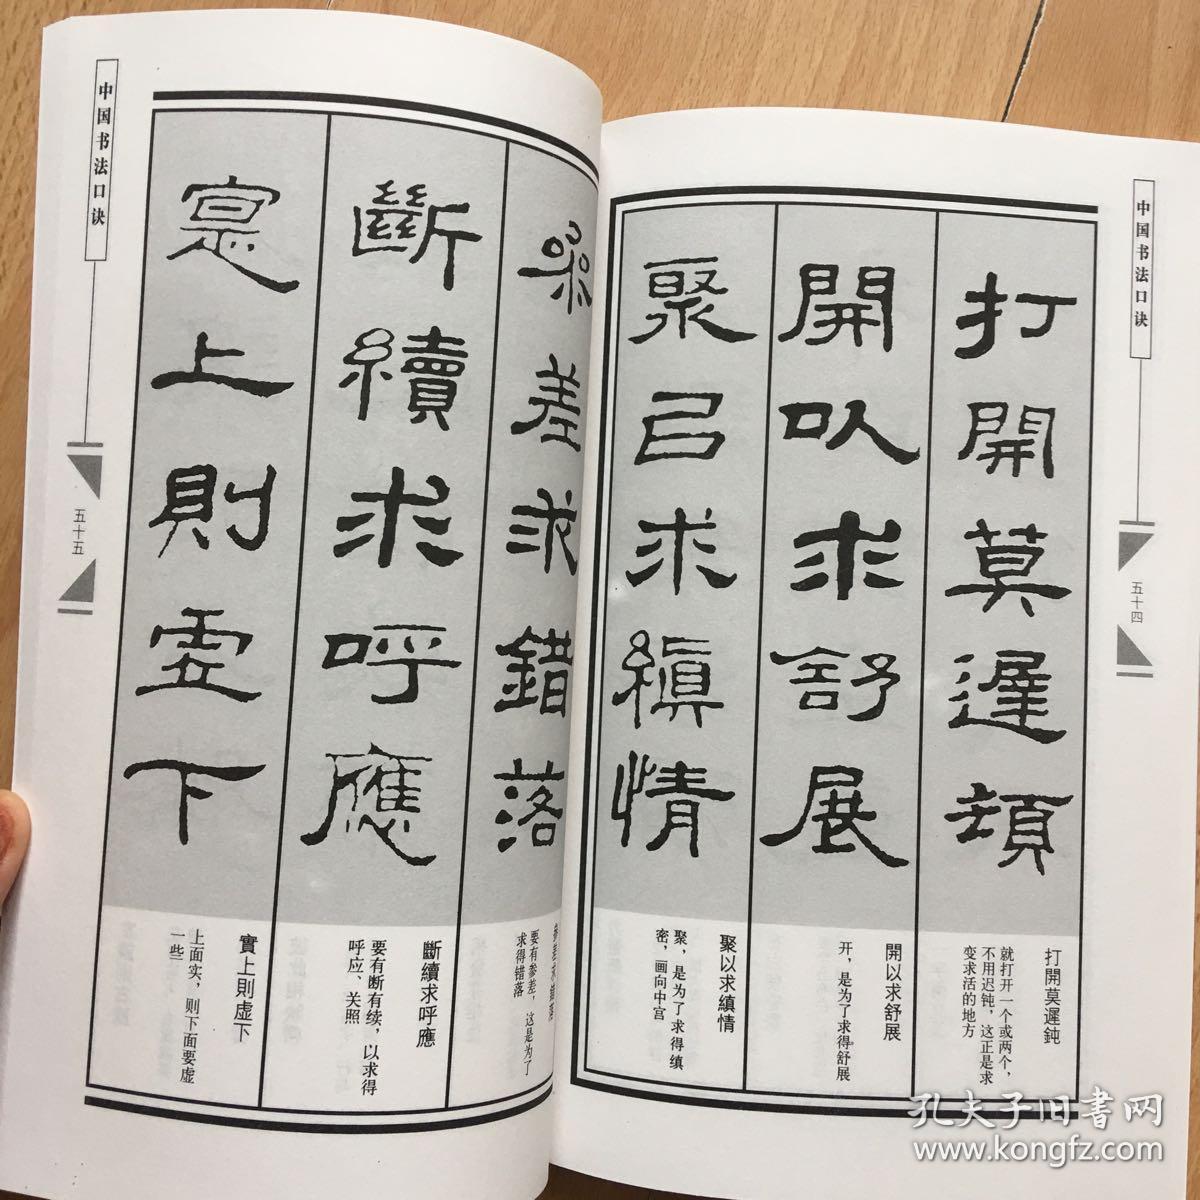 中国书法口诀
五十四
打開莫遲頓
打開莫遲鈍
就打开一个或两个，
不用迟钝，这正是求
变求活的地方
開以求舒展
開以求舒展
开，是为了求得舒展
聚㠯求縝情
聚以求縝情
聚，是为了求得缜
密，画向中宫
参差求錯落
要有参差，这是为了
求得错落
斷續求呼應
斷續求呼應
要有断有续，以求得
呼应、关照
寔上則虛下
實上則虚下
上面实，则下面要虚
一些
中国书法口诀
五十五
孔夫子旧書网
www.kongfz.com